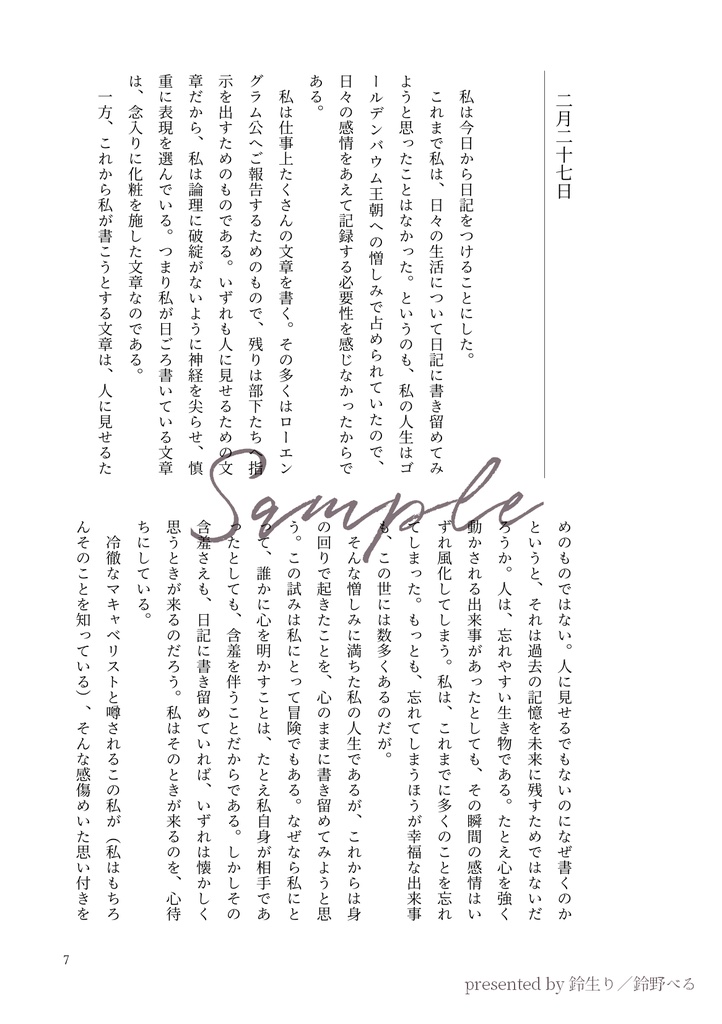 二月二十七日
私は今日から日記をつけることにした。
これまで私は、日々の生活について日記に書き留めてみ
ようと思ったことはなかった。というのも、私の人生はゴ
ールデンバウム王朝への憎しみで占められていたので、
日々の感情をあえて記録する必要性を感じなかったからで
ある。
私は仕事上たくさんの文章を書く。その多くはローエン
グラム公へご報告するためのもので、残りは部下たちへ指
示を出すためのものである。いずれも人に見せるための文
章だから、私は論理に破綻がないように神経を尖らせ、慎
重に表現を選んでいる。つまり私が日ごろ書いている文章
は、念入りに化粧を施した文章なのである。
一方、これから私が書こうとする文章は、人に見せるた
めのものではない。人に見せるでもないのになぜ書くのか
というと、それは過去の記憶を未来に残すためではないだ
ろうか。人は、忘れやすい生き物である。たとえ心を強く
動かされる出来事があったとしても、その瞬間の感情はい
ずれ風化してしまう。私は、これまでに多くのことを忘れ
てしまった。もっとも、忘れてしまうほうが幸福な出来事
も、この世には数多くあるのだが。
そんな憎しみに満ちた私の人生であるが、これからは身
の回りで起きたことを、心のままに書き留めてみようと思
う。この試みは私にとって冒険でもある。なぜなら私にと
って、誰かに心を明かすことは、たとえ私自身が相手であ
ったとしても、含羞を伴うことだからである。しかしその
含羞さえも、日記に書き留めていれば、いずれは懐かしく
思うときが来るのだろう。私はそのときが来るのを、心待
ちにしている。
冷徹なマキャベリストと噂されるこの私が（私はもちろ
んそのことを知っている）、そんな感傷めいた思い付きを
Sample
7
presented by 鈴生り／鈴野べる